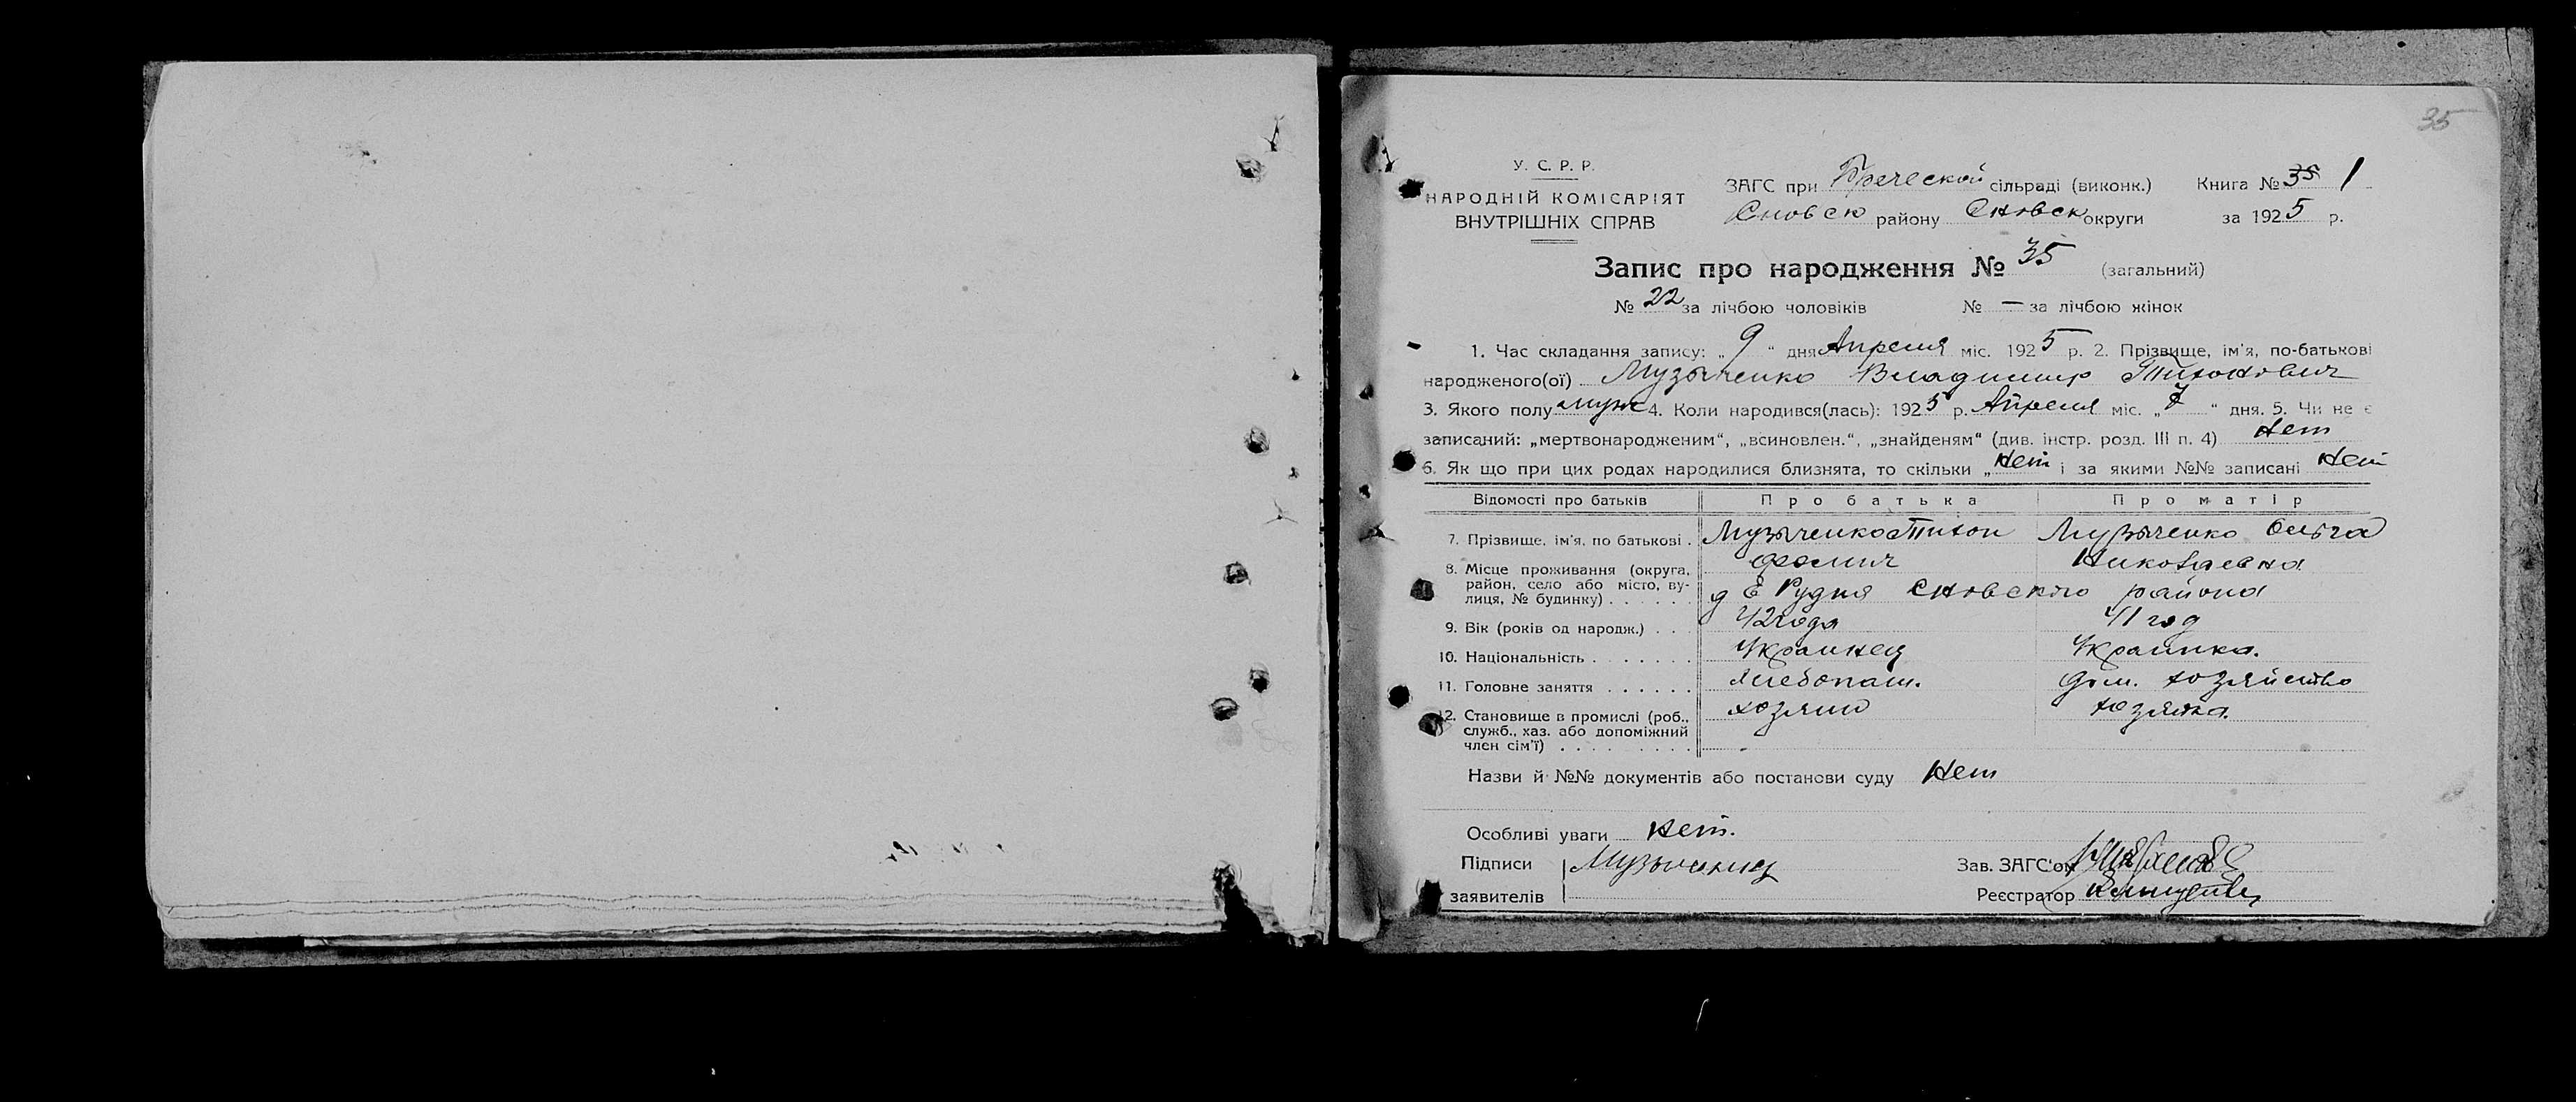 35
У. С. Р. Р.
НАРОДНІЙ КОМІСАРІЯТ
ВНУТРІШНІХ СПРАВ
ЗАГС при сільраді (виконк.) Книга № 35 1
Сновск району Сновск округи за 1925 р.
Запис про народження № 35 (загальний)
№ 22 за лічбою чоловіків № — за лічбою жінок
1. Час складання запису: „ 9 “ дня Апреля міс. 1925 р. 2. Прізвище, ім'я, по-батькові
народженого(ої) Музыченко Владимир Тихонович
3. Якого полу муж 4. Коли народився(лась): 1925 р. Апреля міс. „ 7 “ дня. 5. Чи не є
записаний: „мертвонародженим“, „всиновлен.“, „знайденям“ (див. інстр. розд. III п. 4) Нет
6. Як що при цих родах народилися близнята, то скільки „ Нет і за якими №№ записані Нет
Відомості про батьків Про батька Про матір
7. Прізвище, ім'я, по батькові . Музыченко Тихон Музыченко Ольга
Фомич Николаевна
8. Місце проживання (округа,
район, село або місто, ву-
лиця, № будинку) . . . . . . д Е Рудня Сновского района
9. Вік (років од народж.) . . . 42 года 41 год
10. Національність . . . . . . . Украинец Украинка.
11. Головне заняття . . . . . . Хлебопаш. дом. хозяйство
12. Становище в промислі (роб., хозяин хозяйка.
служб., хаз. або допоміжний
член сім'ї) . . . . . . . . .
Назви й №№ документів або постанови суду Нет
Особливі уваги нет.
Підписи Зав. ЗАГС'ом
заявителів Реєстратор